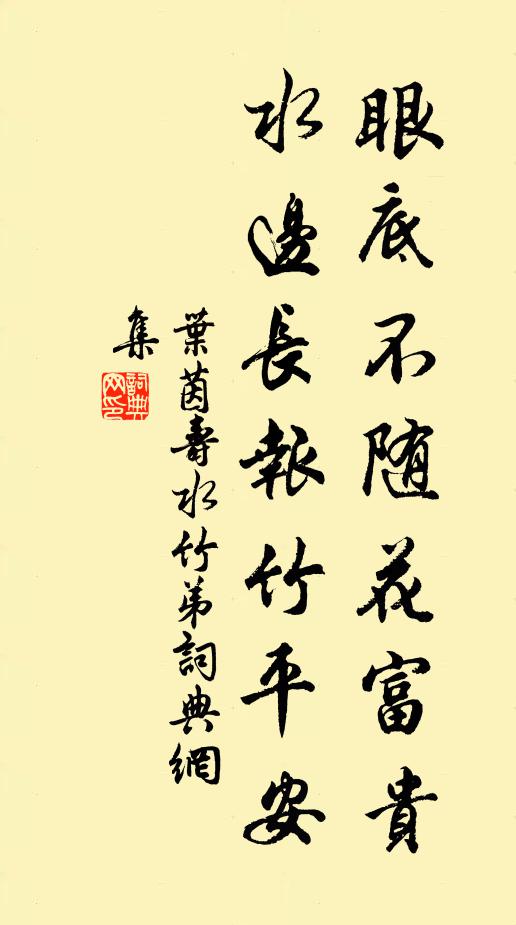 眼底不随花富貴
水邊長報竹平安
葉茵壽水竹弟詞典網
集
詞典
网印